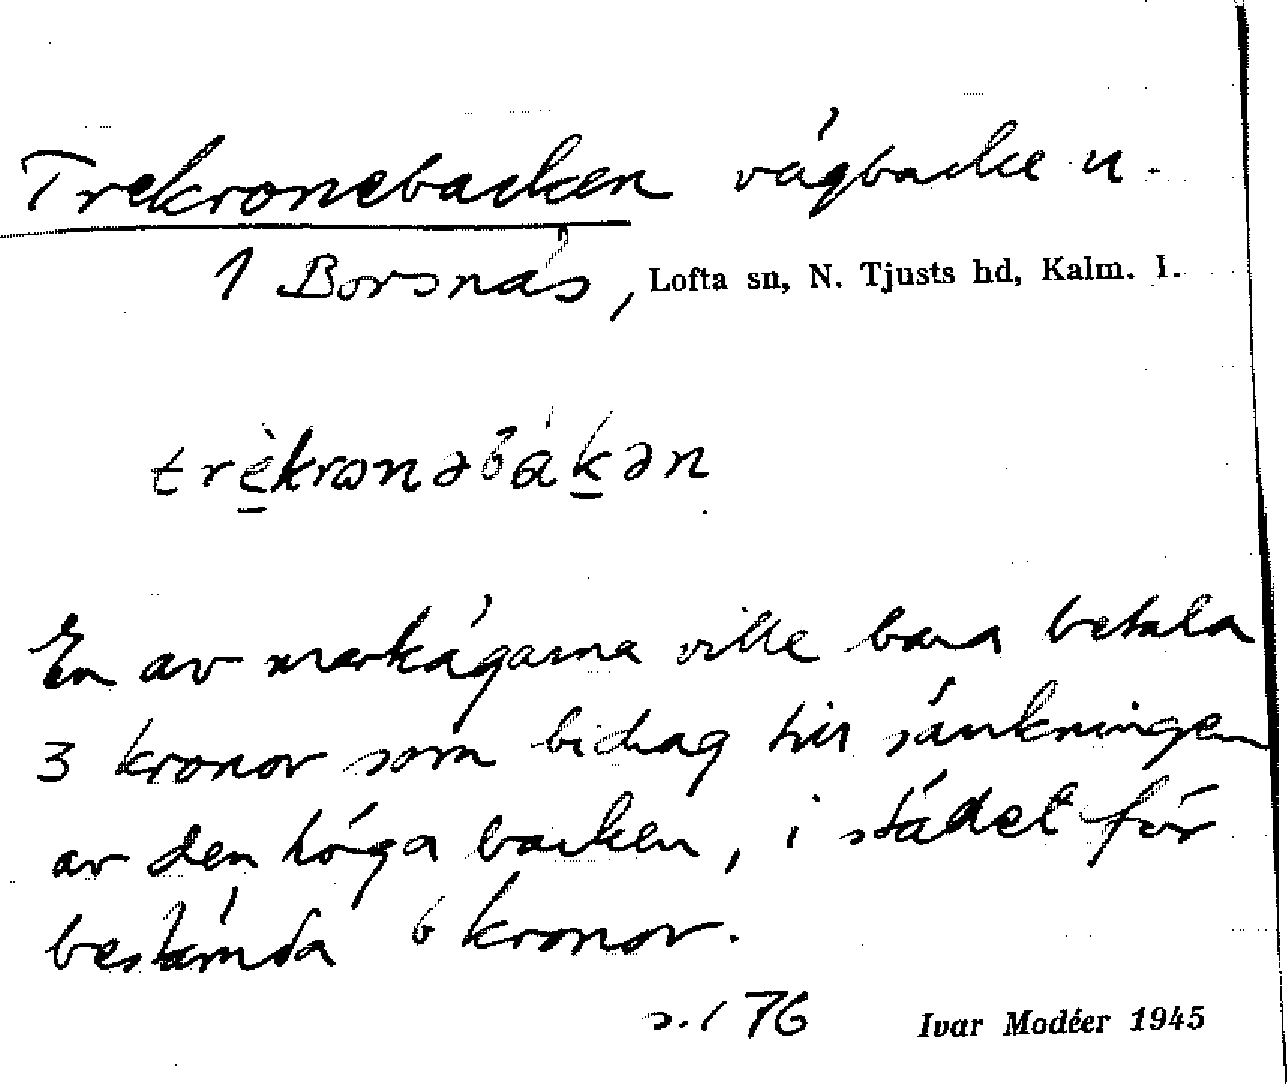 Trekronebacken vägbacke u.
1 Borsnäs, Lofta sn, N. Tjusts hd, Kalm. l.
trèkrɷnəbákən
En av markägarna ville bara betala
3 kronor som bidrag till sänkningen
av den höga backen, i stället för
bestämda 6 kronor.
s. 176 Ivar Modéer 1945